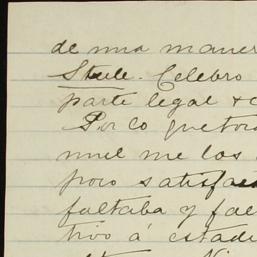 de una maner
Steele. Celebro
parte legal & c
Por lo que toca
muel me las
poco satisfac
faltaba y fal
tivo á estad